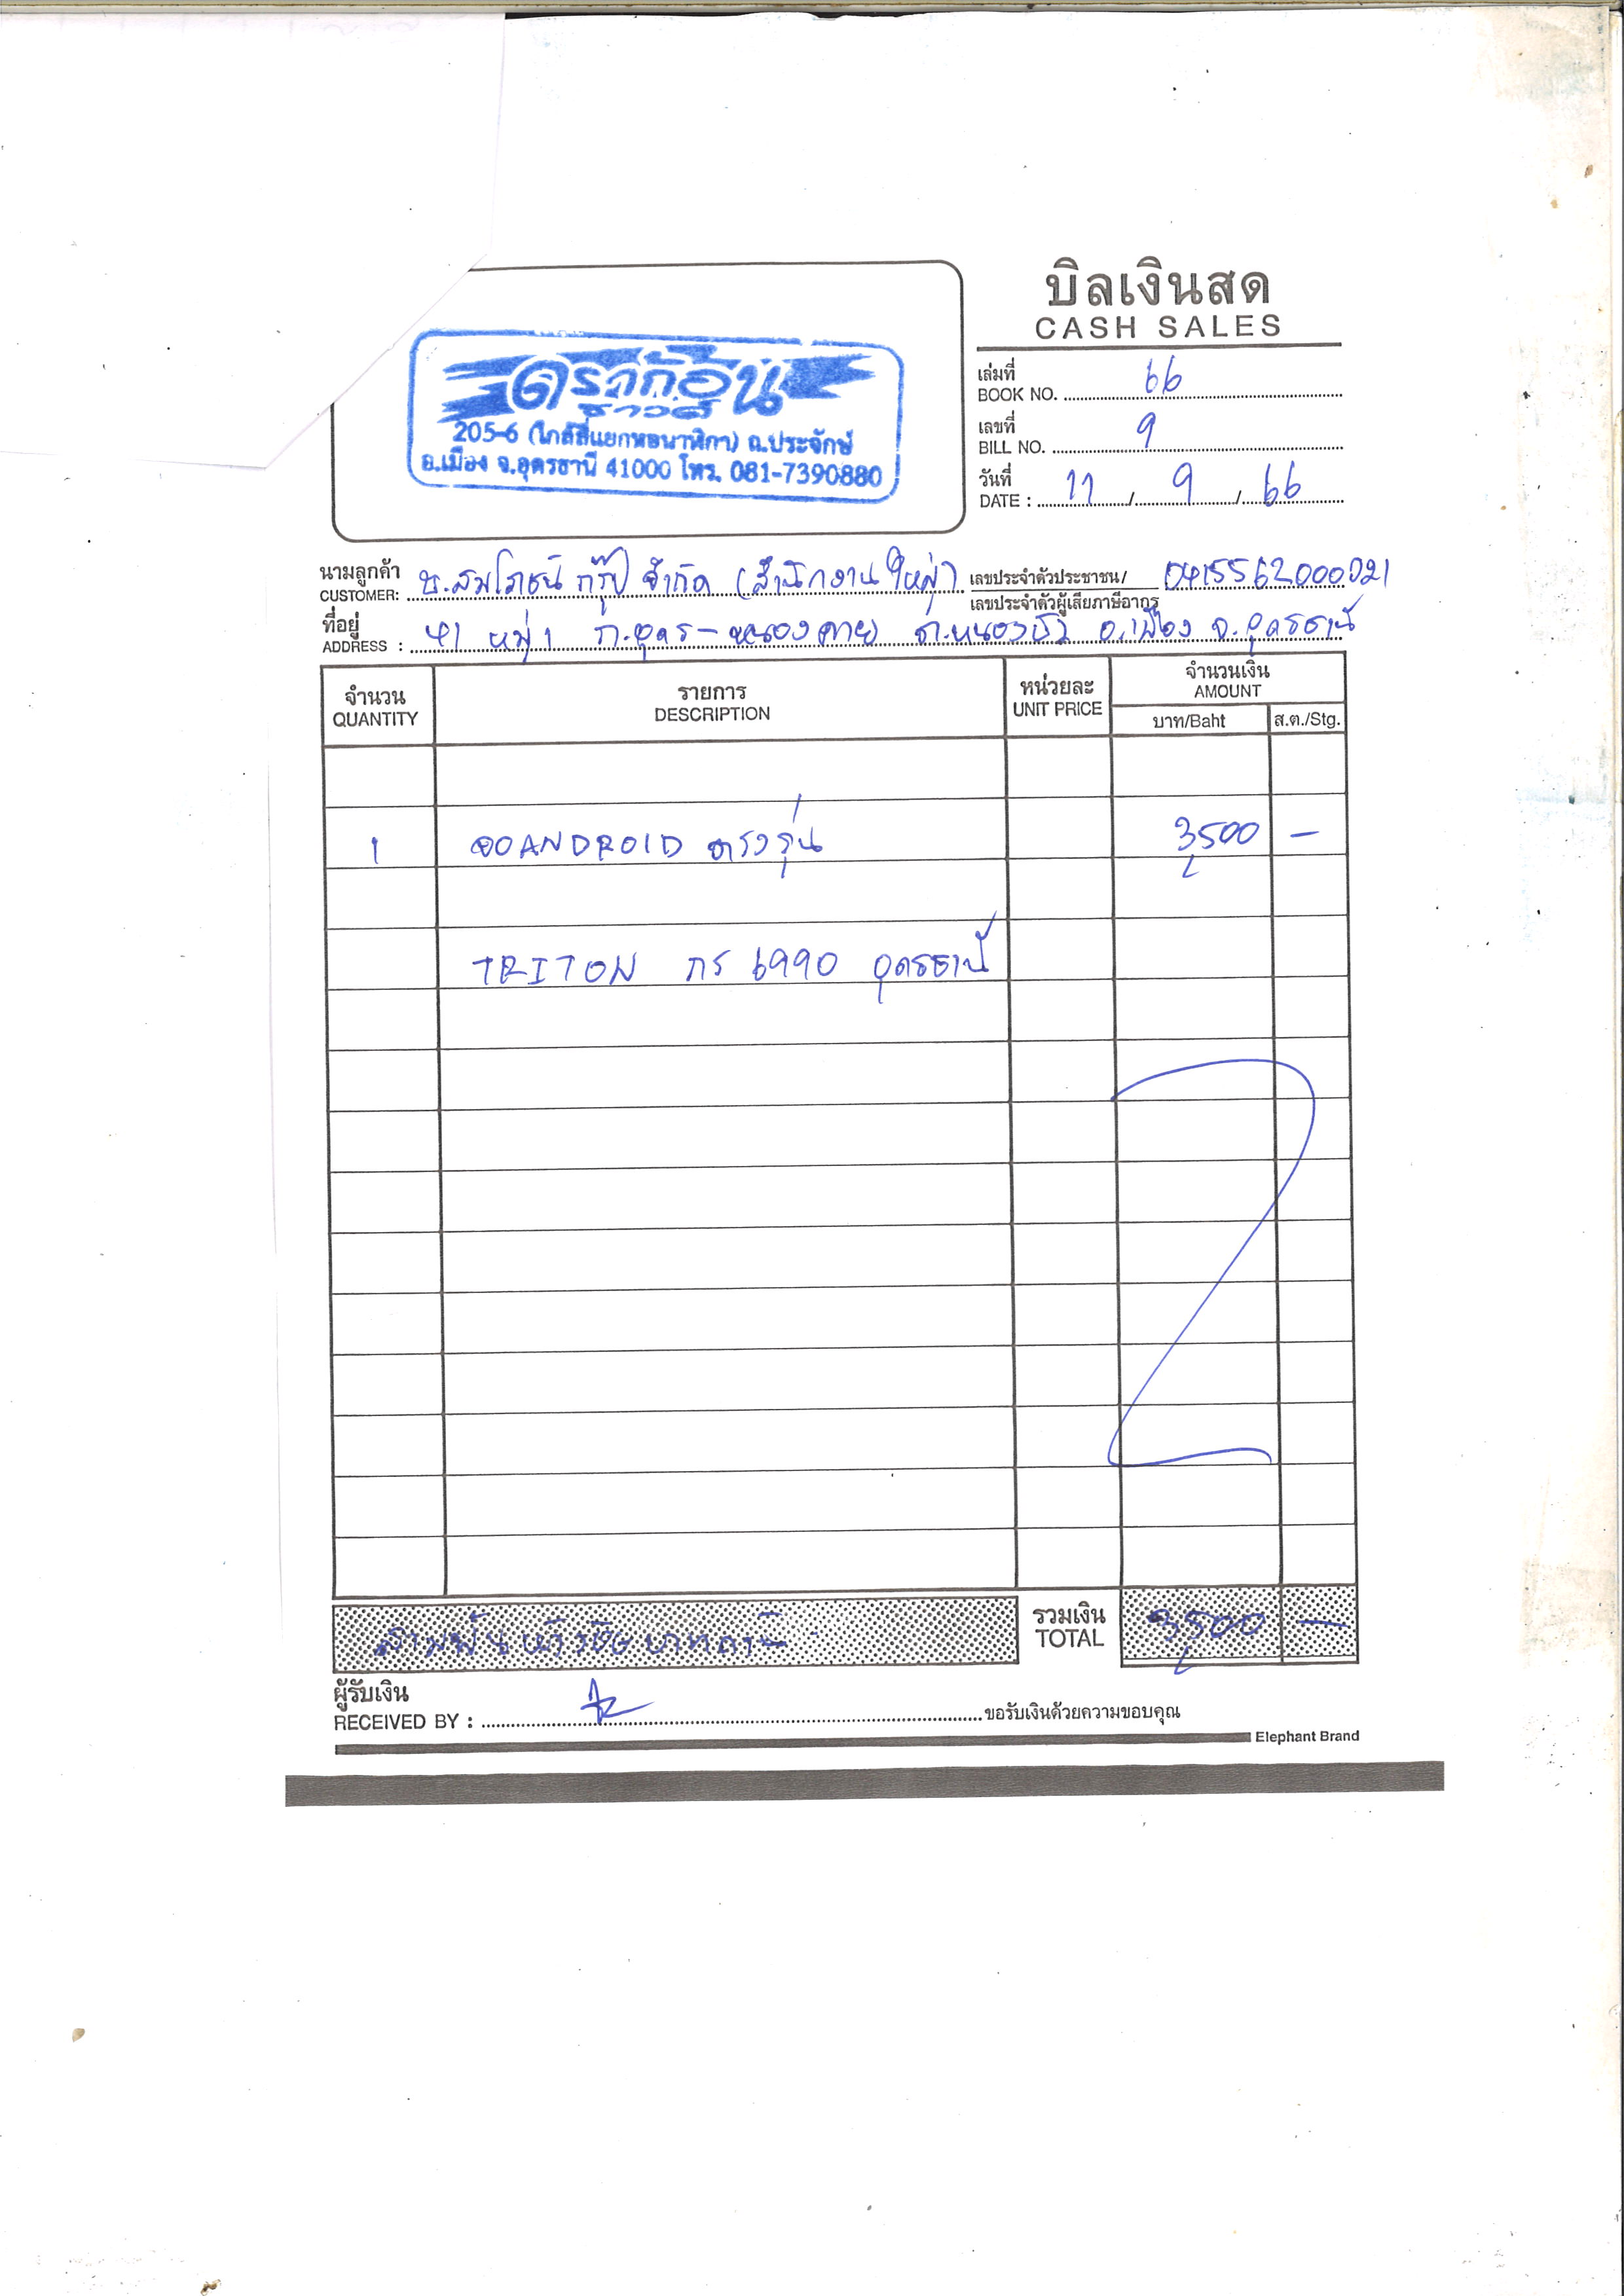 บิลเงินสด
CASH SALES
ดราก้อน
ซาวด์
205-6 (ใกล้สี่แยกหอนาฬิกา) ถ.ประจักษ์
อ.เมือง จ.อุดรธานี 41000 โทร. 081-7390880
เล่มที่
BOOK NO. 66
เลขที่
BILL NO. 9
วันที่
DATE : 11 / 9 / 66
นามลูกค้า
CUSTOMER: บ.สมโภชน์ กรุ๊ป จำกัด (สำนักงานใหญ่) เลขประจำตัวประชาชน/ 0415562000021
เลขประจำตัวผู้เสียภาษีอากร
ที่อยู่
ADDRESS : 41 หมู่ 1 ถ.อุดร-หนองคาย ต.หนองบัว อ.เมือง จ.อุดรธานี
จำนวน รายการ หน่วยละ จำนวนเงิน
QUANTITY DESCRIPTION UNIT PRICE AMOUNT
บาท/Baht ส.ต./Stg.
1 จอ ANDROID ตรงรุ่น 3,500 -
TRITON กร 6990 อุดรธานี
สามพันห้าร้อยบาทถ้วน รวมเงิน 3,500 -
TOTAL
ผู้รับเงิน
RECEIVED BY : ขอรับเงินด้วยความขอบคุณ
Elephant Brand